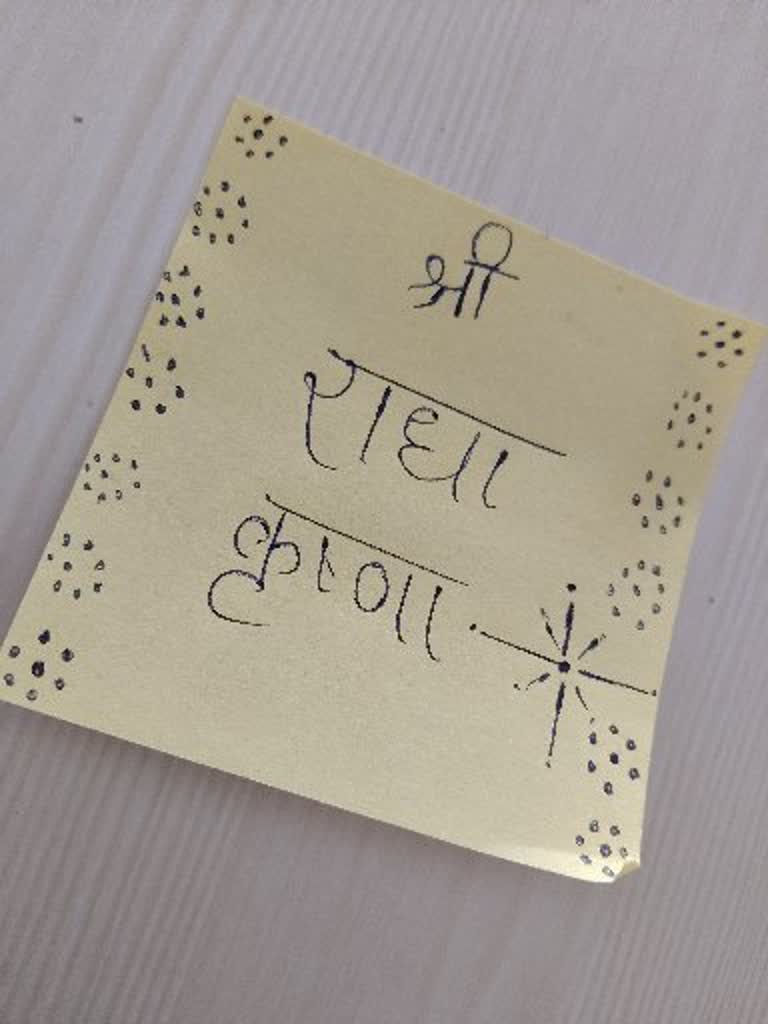 श्री
राधा
कृष्णा